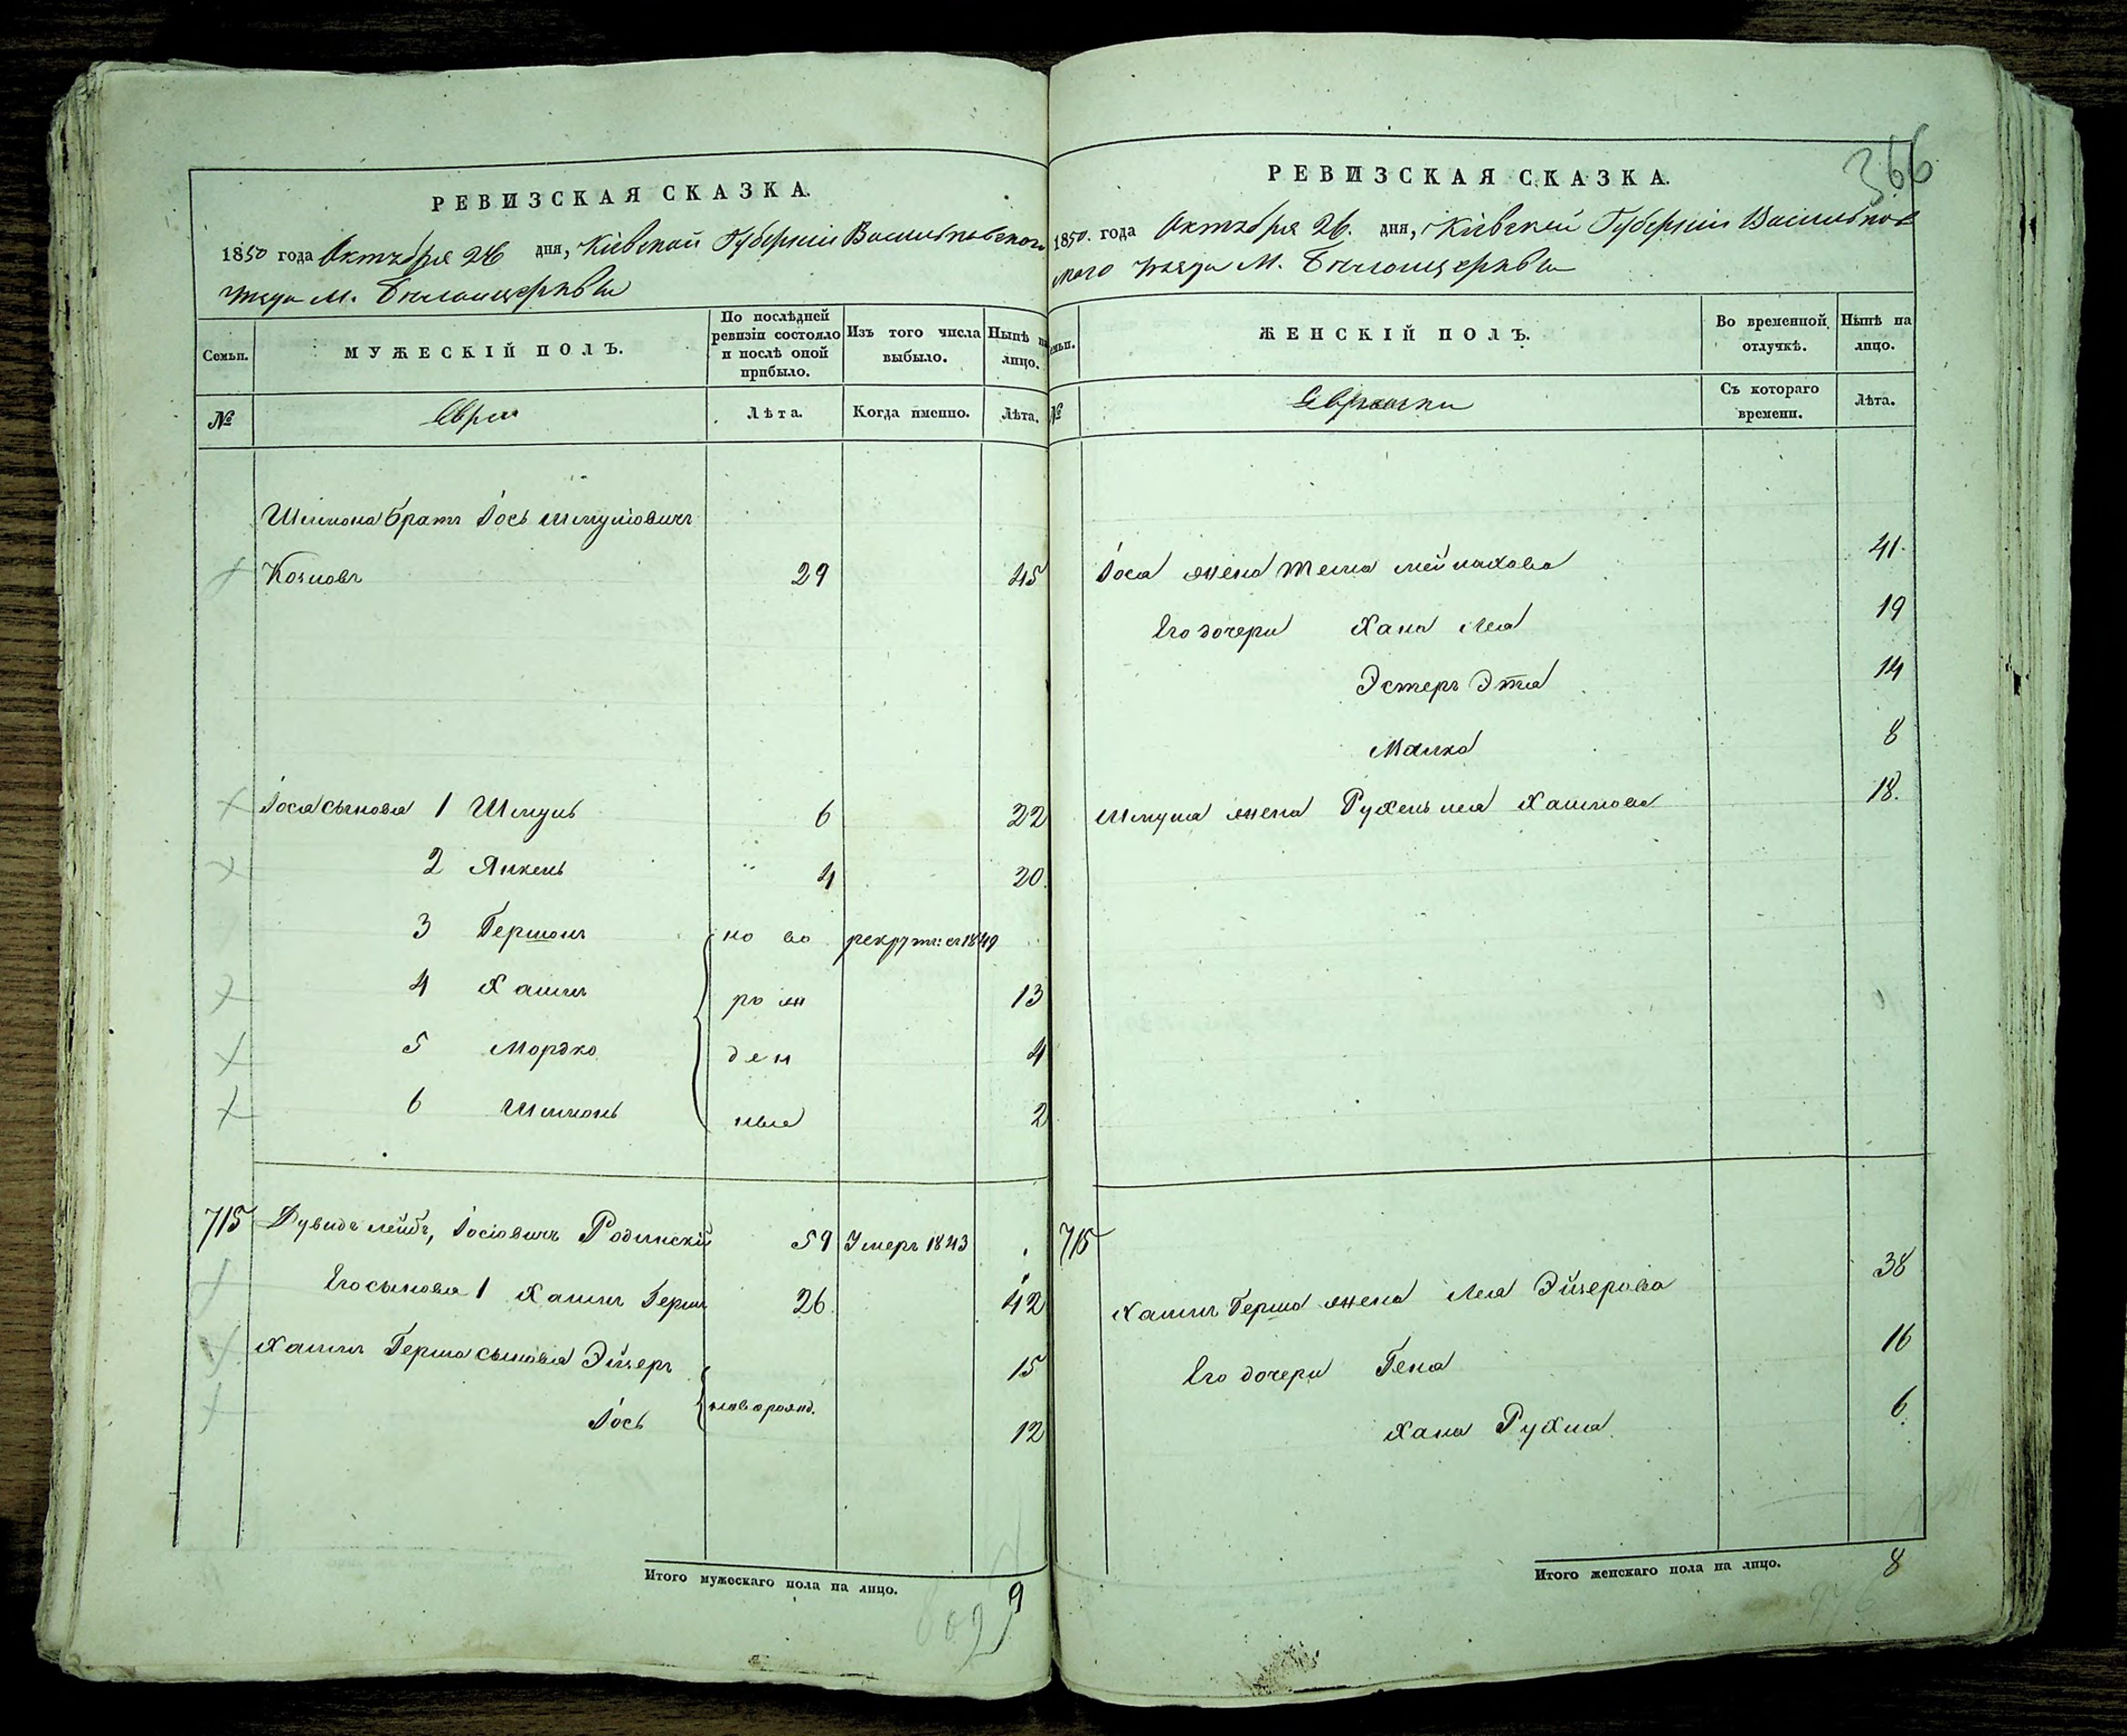 РЕВИЗСКАЯ СКАЗКА.
1850 года Октября 26 дня, Кіевской Губерніи Васильковского
уезда М. Белоцерквы
Семьи.
МУЖЕСКІЙ ПОЛЪ.
По послѣдней ревизіи состояло и послѣ оной прибыло.
Изъ того числа выбыло.
Нынѣ на лицо.
№
Евреи
Лѣта.
Когда именно.
Лѣта.
Шимона братъ Іось Шмулiовичъ
Козловъ 29 45
Іося сыновья 1 Шмуль 6 22
2 Янкель " 4 20
3 Гершонъ но во рекрутъ: съ 1849
4 Хаимъ ро ж 13
5 Мордко ден 4
6 Шимонь ные 2
715 Дувидъ Лейбъ, Іосіовичъ Родинскій 59 Умеръ 1843
Его сыновья 1 Хаимъ Герш 26 42
Хаимъ Герша сыновья Эйзеръ 15
новорожд.
Іось 12
Итого мужескаго пола на лицо. 9
802
366
РЕВИЗСКАЯ СКАЗКА.
1850. года Октября 26. дня, Кіевской Губерніи Васильков
ского уезда М. Белоцерквы
Семьи.
ЖЕНСКІЙ ПОЛЪ.
Во временной отлучкѣ.
Нынѣ на лицо.
№
Еврейки
Съ котораго времени.
Лѣта.
Іося жена Мейлахова 41.
Его дочери Хана Лея 19
Эстеръ Этля 14
Малка 8
Шмуля жена Рухель Лея Хаимова 18.
715
Хаимъ Герша жена Лея Эйзерова 38
Его дочери Геня 16
Хана Рухля 6
Итого женскаго пола на лицо. 8